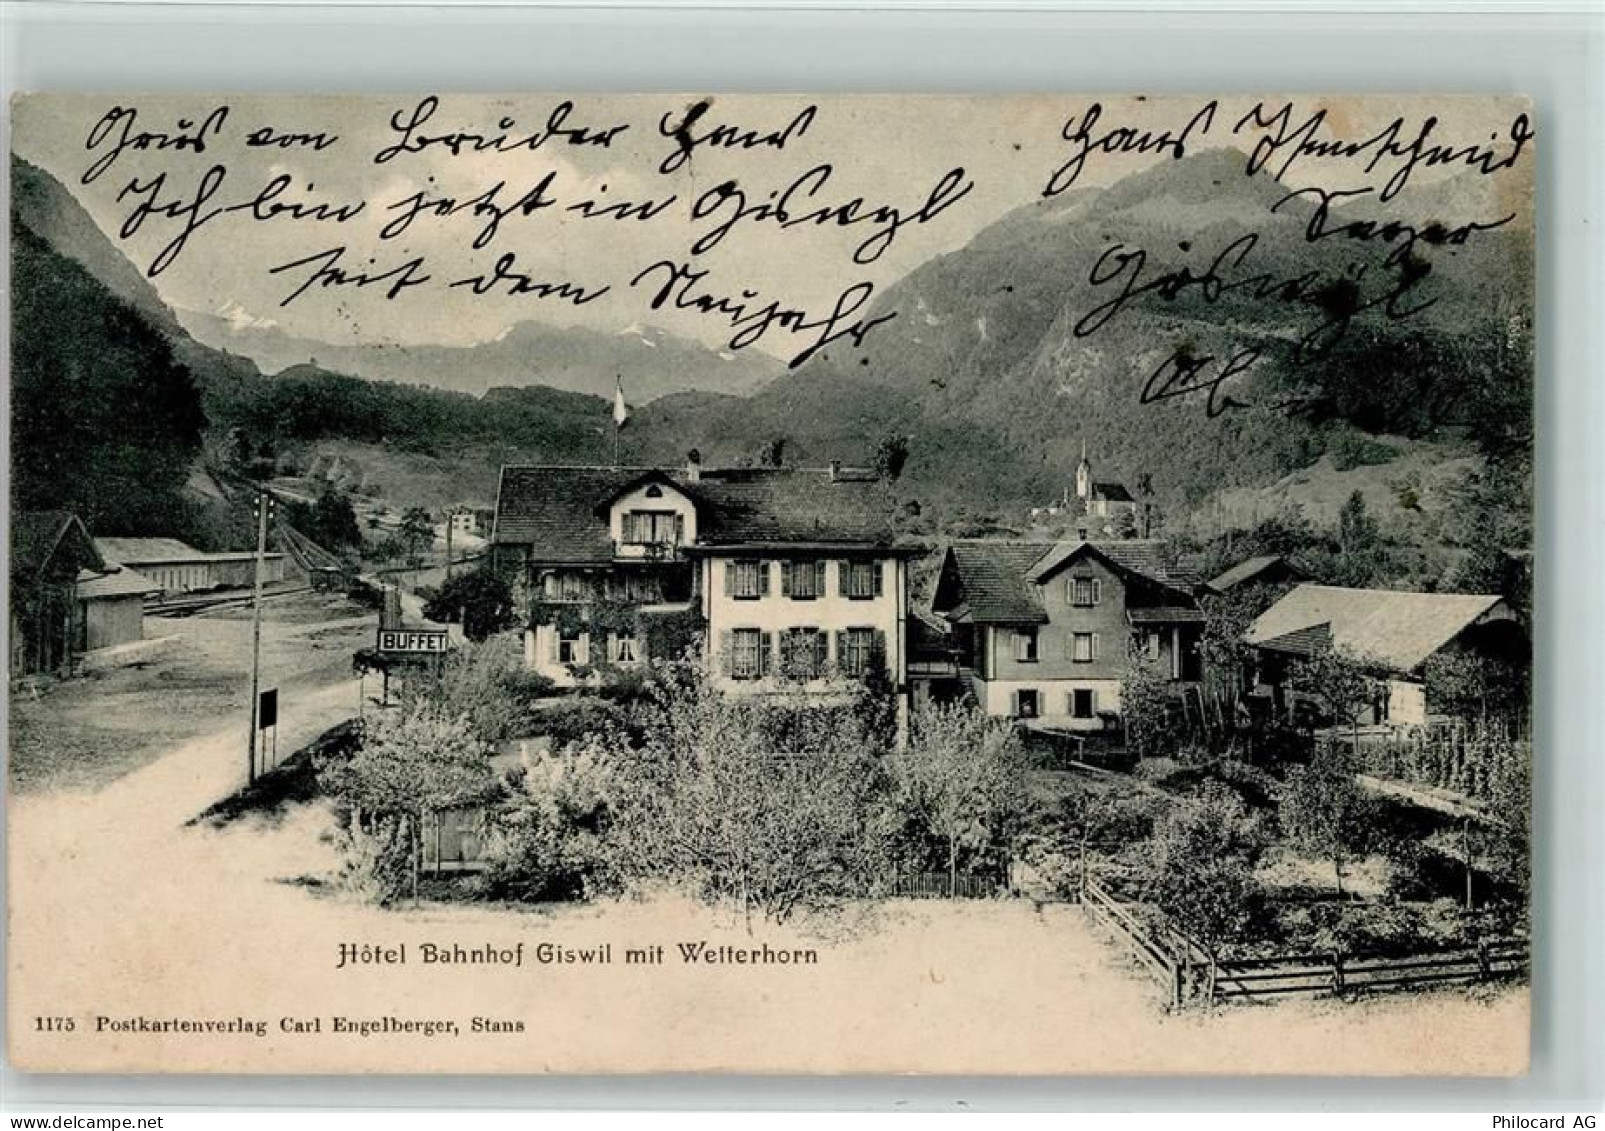 Grus von Bruder Hans
Ich bin jetzt in Giswyl
seit dem Neujahr
Hans Isenschmid
Sager
Giswyl
Ob
BUFFET
Hôtel Bahnhof Giswil mit Wetterhorn
1175 Postkartenverlag Carl Engelberger, Stans
www.delcampe.net
tico
Philocard AG